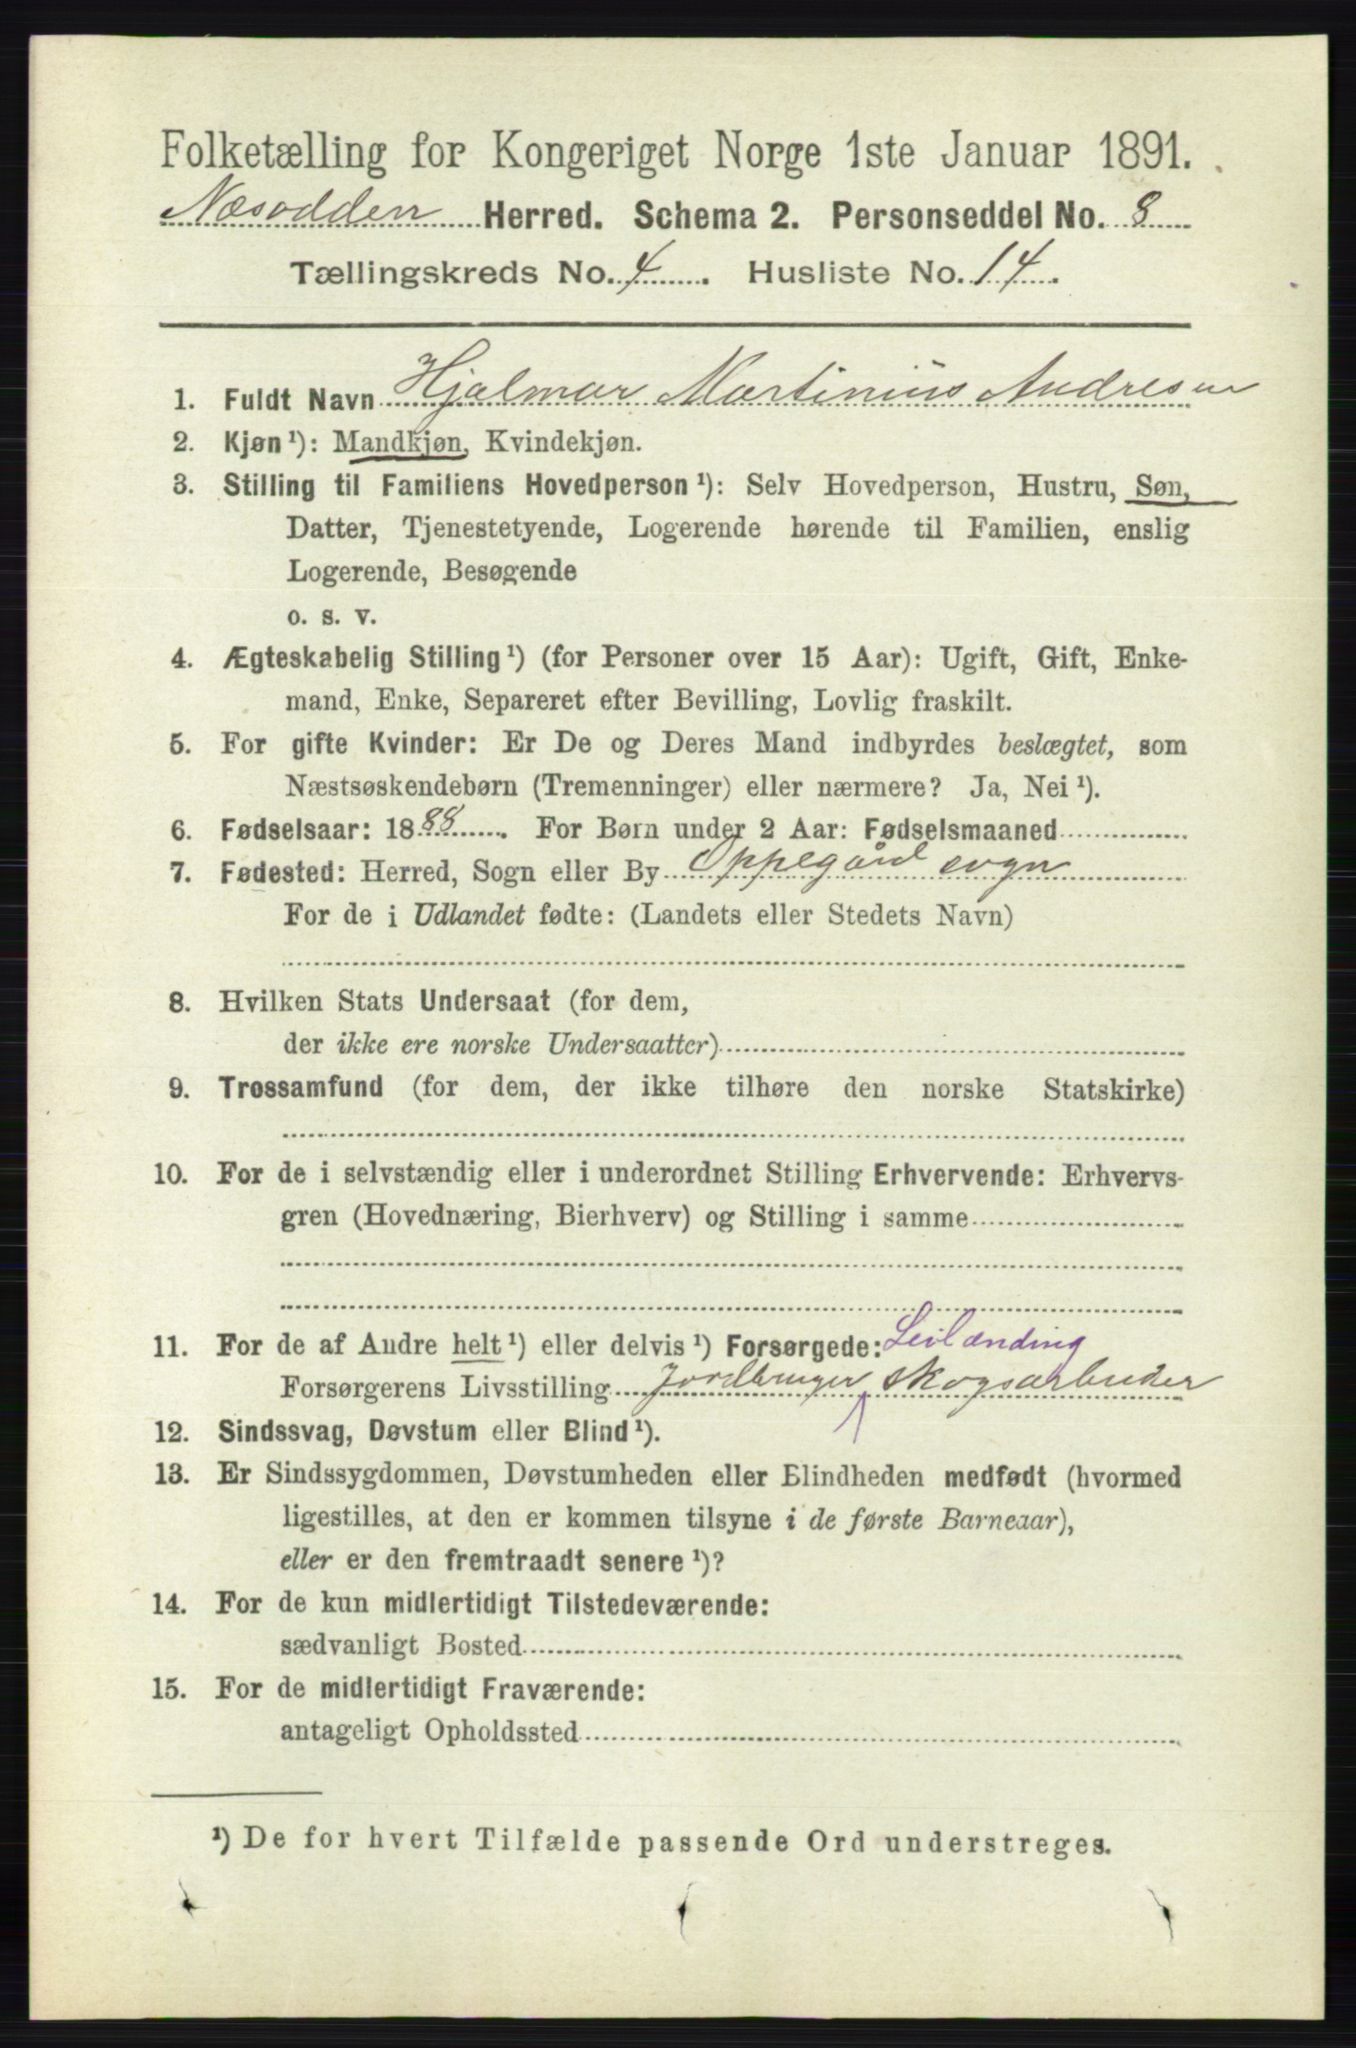 Folketælling for Kongeriget Norge 1ste Januar 1891.
Næsodden Herred. Schema 2. Personseddel No. 8
Tællingskreds No. 4. Husliste No. 14.
1. Fuldt Navn Hjalmar Martinius Andresen
2. Kjøn ¹): Mandkjøn, Kvindekjøn.
3. Stilling til Familiens Hovedperson ¹): Selv Hovedperson, Hustru, Søn,
Datter, Tjenestetyende, Logerende hørende til Familien, enslig
Logerende, Besøgende
o. s. v.
4. Ægteskabelig Stilling ¹) (for Personer over 15 Aar): Ugift, Gift, Enke-
mand, Enke, Separeret efter Bevilling, Lovlig fraskilt.
5. For gifte Kvinder: Er De og Deres Mand indbyrdes beslægtet, som
Næstsøskendebørn (Tremenninger) eller nærmere? Ja, Nei ¹).
6. Fødselsaar: 1888. For Børn under 2 Aar: Fødselsmaaned
7. Fødested: Herred, Sogn eller By Oppegård sogn
For de i Udlandet fødte: (Landets eller Stedets Navn)
8. Hvilken Stats Undersaat (for dem,
der ikke ere norske Undersaatter)
9. Trossamfund (for dem, der ikke tilhøre den norske Statskirke)
10. For de i selvstændig eller i underordnet Stilling Erhvervende: Erhvervs-
gren (Hovednæring, Bierhverv) og Stilling i samme
11. For de af Andre helt ¹) eller delvis ¹) Forsørgede: Leilænding
Forsørgerens Livsstilling Jordbruger skogsarbeider
12. Sindssvag, Døvstum eller Blind ¹).
13. Er Sindssygdommen, Døvstumheden eller Blindheden medfødt (hvormed
ligestilles, at den er kommen tilsyne i de første Barneaar),
eller er den fremtraadt senere ¹)?
14. For de kun midlertidigt Tilstedeværende:
sædvanligt Bosted
15. For de midlertidigt Fraværende:
antageligt Opholdssted
¹) De for hvert Tilfælde passende Ord understreges.